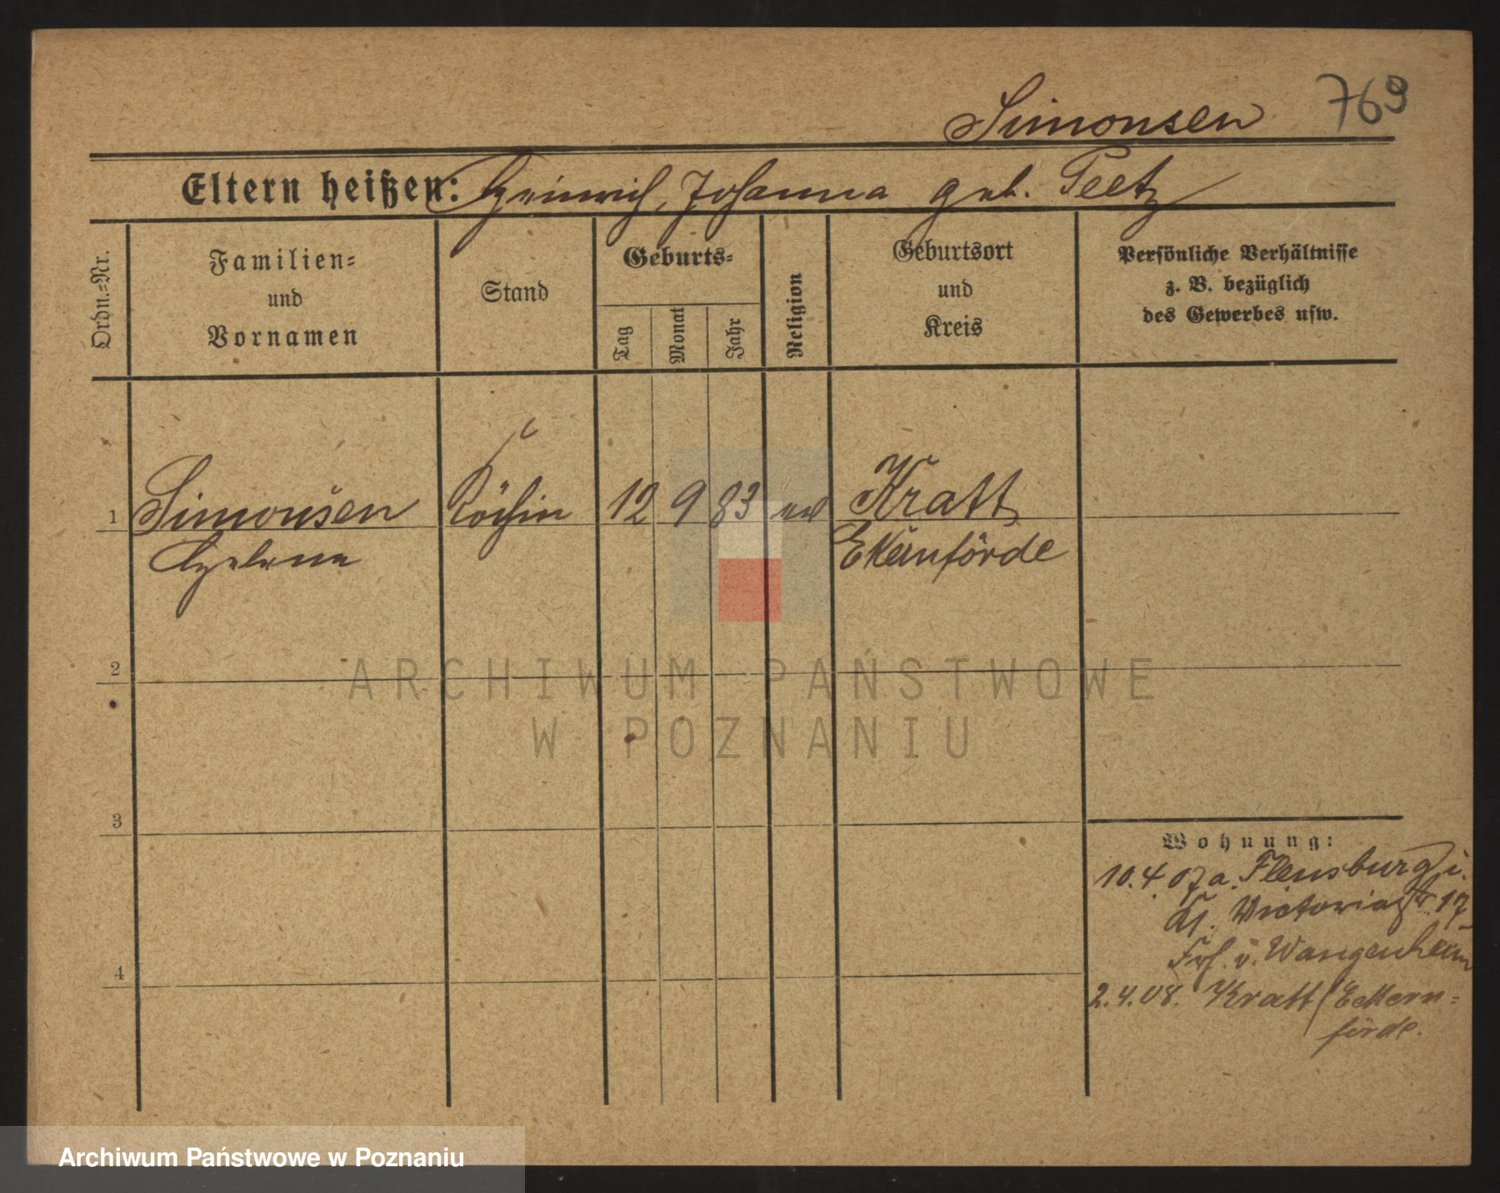 Simonsen 769
Eltern heißen: Heinrich, Johanna geb. Peetz
Ordn.=Nr.
Familien=
und
Vornamen
Stand
Geburts=
Tag
Monat
Jahr
Religion
Geburtsort
und
Kreis
Persönliche Verhältnisse
z. B. bezüglich
des Gewerbes usw.
1 Simonsen Köchin 12 9 83 Kratt
Helene Ekernförde
2
3
4
Wohnung:
10.4.07 a. Flensburg i.
Victoriastr. 17
v. Wangenheim
2.4.08. Kratt / Eckern=
förde.
ARCHIWUM PAŃSTWOWE
W POZNANIU
Archiwum Państwowe w Poznaniu